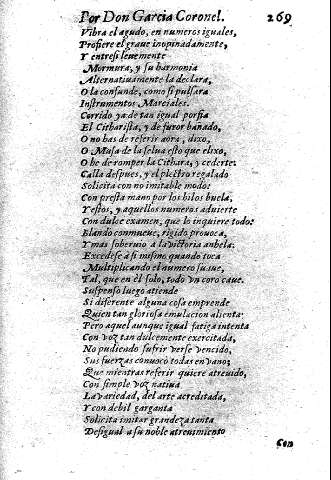 Por Don Garcia Coronel. 269
Vibra el agudo, en numeros iguales,
Profiere el graue inopinadamente,
Y entresi leuemente
Mormura, y su harmonia
Alternatiuamente la declara,
O la confunde, como si pulsara
Instrumentos Marciales.
Corrido ya de tan igual porfia
El Citharista, y de furor bañado,
O no has de referir aora, dixo,
O Musa de la selua esto que elixo,
O he de romper la Cithara, y cederte.
Calla despues, y el plectro regalado
Solicita con no imitable modo:
Con presta mano por los hilos buela,
Y estos, y aquellos numeros aduierte
Con dulce examen, que lo inquiere todo:
Blando conmueue, rigido prouoca,
Y mas soberuio a la victoria anhela.
Excedese à si mismo quando toca
Multiplicando el numero suaue,
Tal, que en èl solo, todo vn coro caue.
Suspenso luego atiende
Si diferente alguna cosa emprende
Quien tan gloriosa emulacion alienta:
Pero aquel aunque igual fatiga intenta
Con voz tan dulcemente exercitada,
No pudiendo sufrir verse vencido,
Sus fuerzas conuocò todas en vano;
Que mientras referir quiere atreuido,
Con simple voz natiua
La variedad, del arte acreditada,
Y con debil garganta
Solicita imitar grandeza tanta
Desigual a su noble atreuimiento
Con